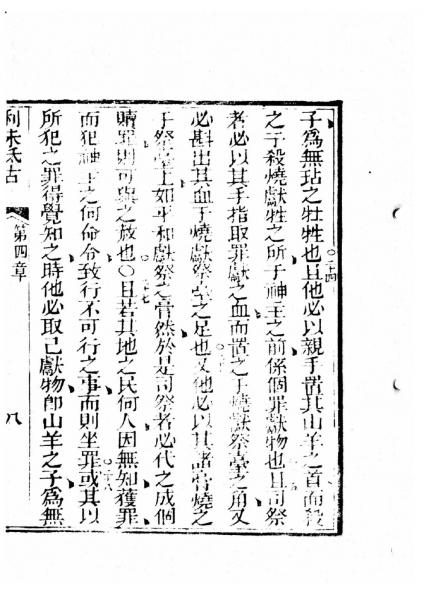 子為無玷之牡牲也且他必以親手置其山羊之首而殺
之于殺燒獻牲之所于神主之前係個罪獻物也且司祭
者必以其手指取罪獻之血而置之于燒獻祭臺之角又
必斟出其血于燒獻祭臺之足也又他必以其諸膏燒之
于祭臺上如平和獻祭之膏然於是司祭者必代之成個
贖罪則可與之赦也○且若其地之民何人因無知獲罪
而犯神主之何命令致行不可行之事而則坐罪或其以
所犯之罪得覺知之時他必取己獻物即山羊之子為無
利未氏古 第四章 八
二十四
二十七
二十八